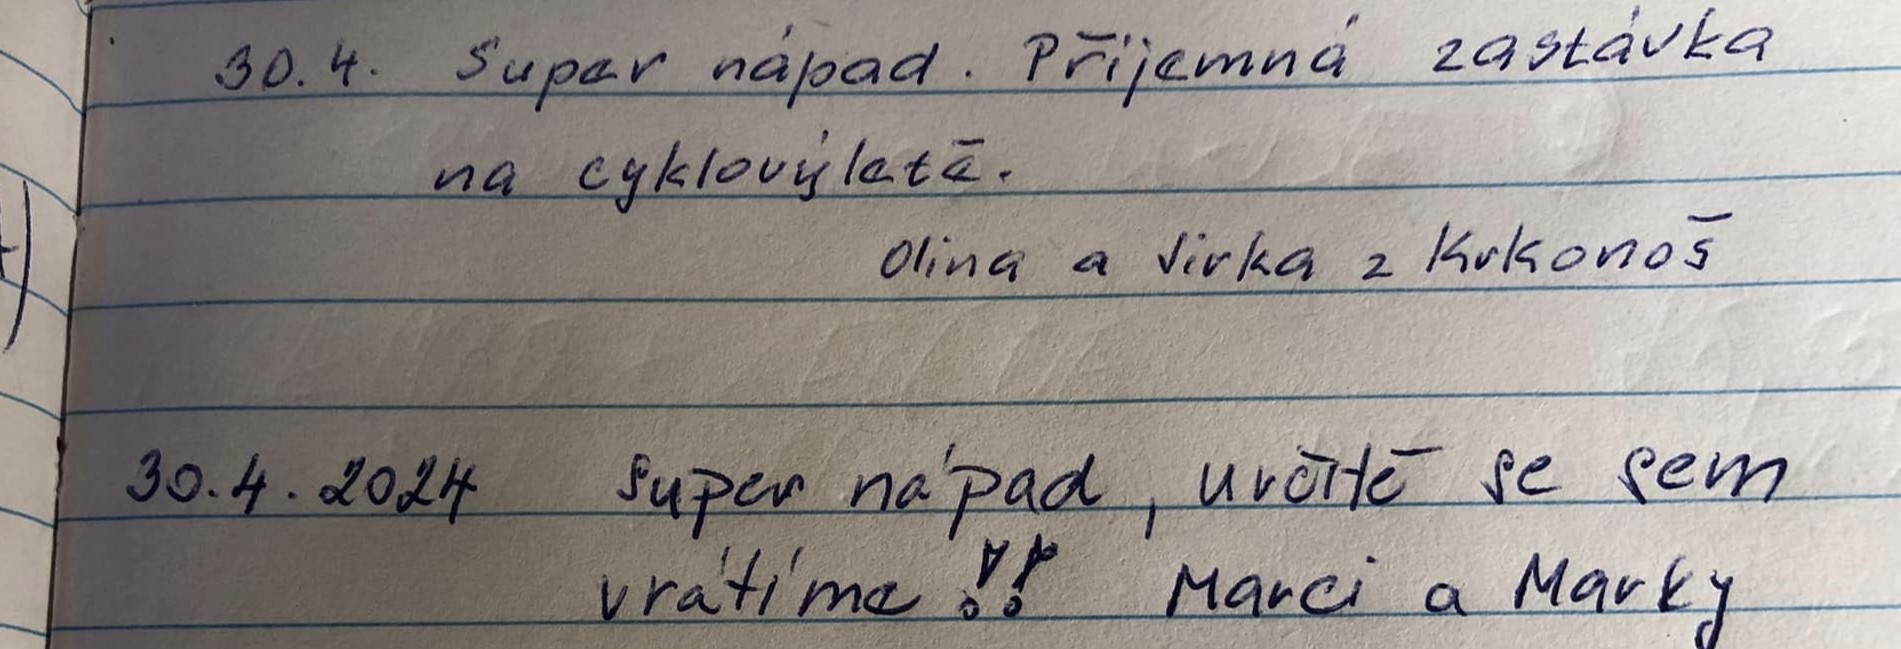 30.4. Super nápad. Příjemná zastávka
na cyklovýletě.
Olina a Jirka z Krkonoš
30.4.2024 Super nápad, určitě se sem
vrátíme!! Marci a Marky